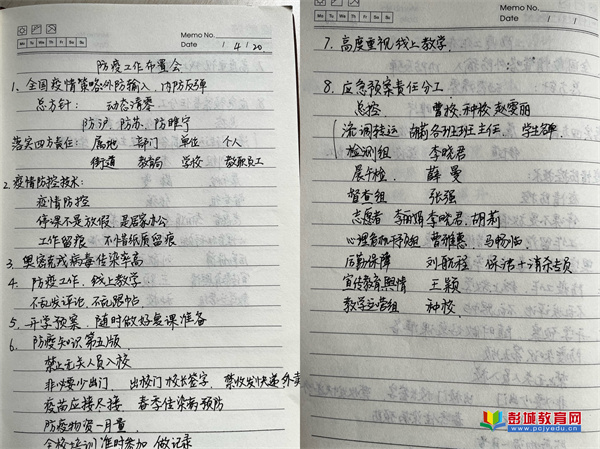 Memo No.
Mo Tu We Th Fr Sa Su
Date / 4 / 20
防疫工作布置会
1、全国疫情策略:外防输入、内防反弹
总方针: 动态清零
防沪、防苏、防睢宁
落实四方责任: 属地 部门 单位 个人
街道 教育局 学校 教职员工
2.疫情防控技术:
疫情防控
停课不是放假 是居家办公
工作留痕 不惜纸质留痕
3、奥密克戎病毒传染率高
4、防疫工作、线上教学
不乱发评论、不乱跟帖
5、开学预案、随时做好复课准备
6、防疫知识第五版、
禁止无关人员入校
非必要少出门、出校门校长签字、禁收发快递外卖
疫苗应接尽接 春季传染病预防
防疫物资一月量、
全校培训 准时参加 做记录
Memo No.
Mo Tu We Th Fr Sa Su
Date / /
7、高度重视线上教学
8、应急预案责任分工
总控 曹校、种校 赵雯丽
流调转运 胡莉各班班主任、学生名单、
检测组 李晓君
晨午检、 薛曼
督查组 张强
志愿者 李丽娟 李晓君、胡莉
心理 曹雅惠、马畅
后勤保障 刘航程 保洁+消杀专员
宣传教育舆情 王颖
教学运营组 种校、
彭城教育网
www.pcjyedu.cn